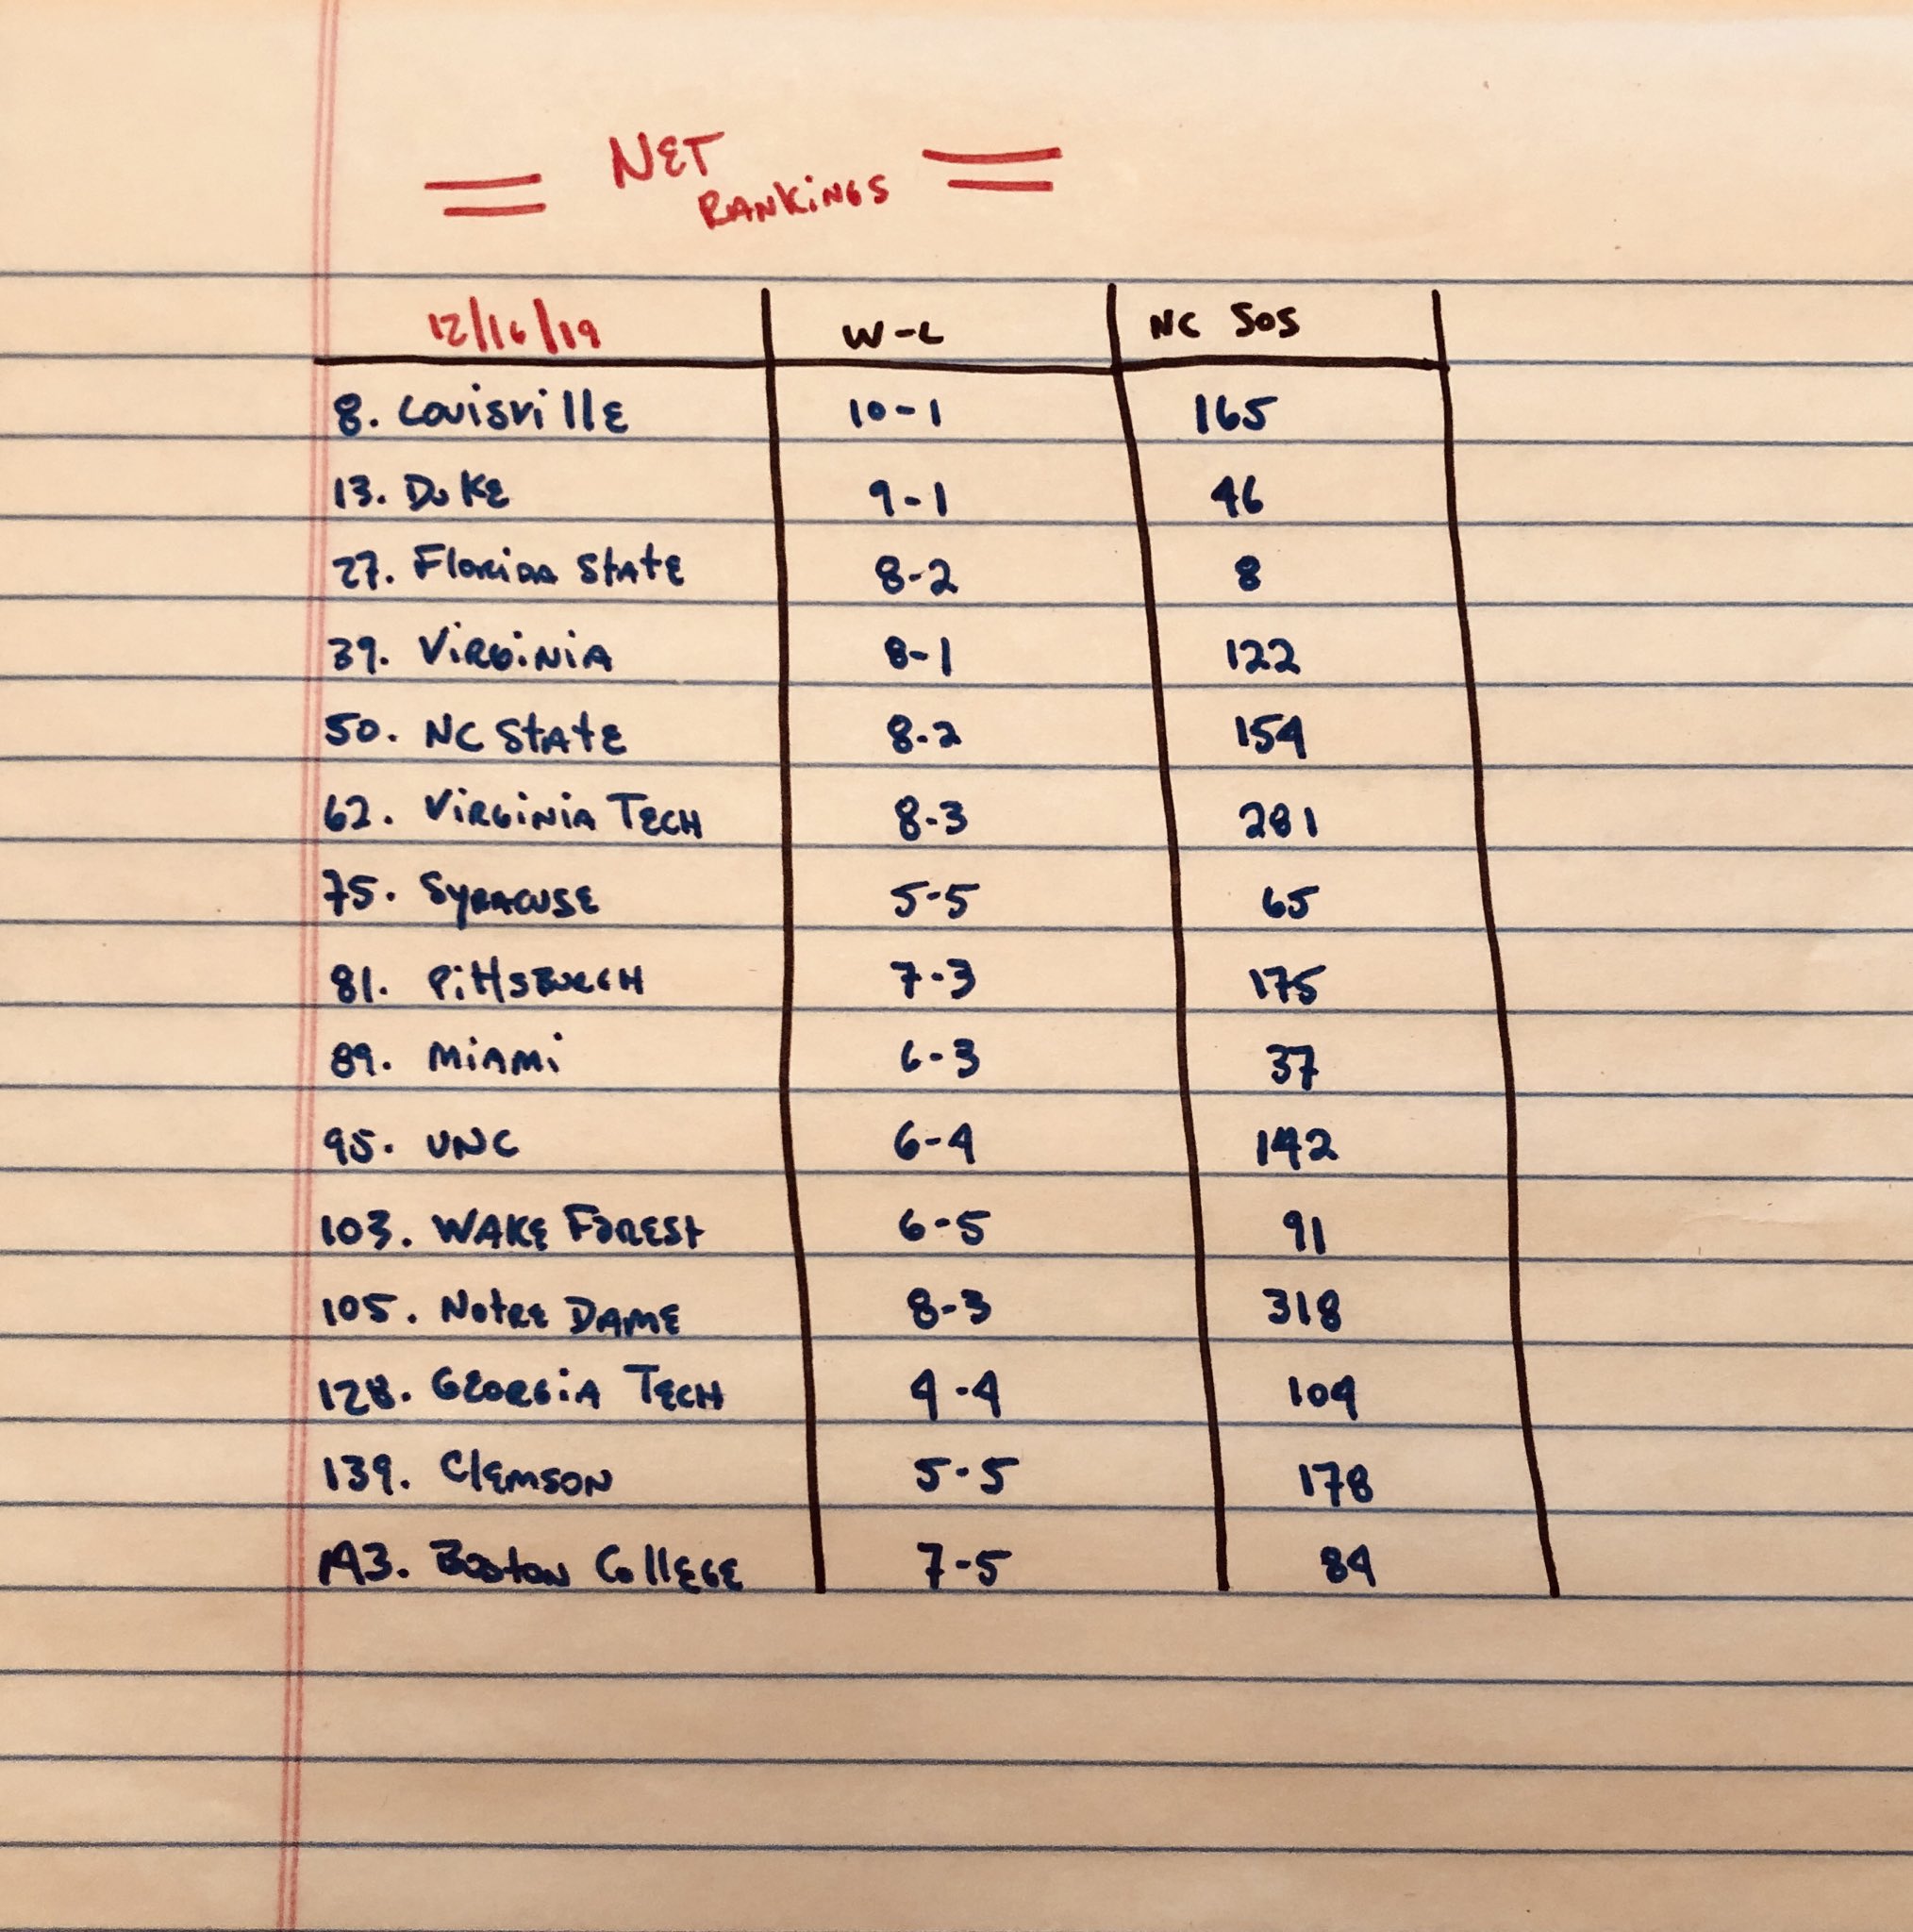 NET
RANKINGS
12/16/19 W-L NC SOS
8. Louisville 10-1 165
13. DUKE 9-1 46
27. Florida State 8-2 8
39. Virginia 8-1 122
50. NC State 8-2 154
62. Virginia Tech 8-3 281
75. Syracuse 5-5 65
81. Pittsburgh 7-3 175
89. Miami 6-3 37
95. UNC 6-4 142
103. Wake Forest 6-5 91
105. Notre Dame 8-3 318
128. Georgia Tech 4-4 104
139. Clemson 5-5 178
143. Boston College 7-5 84